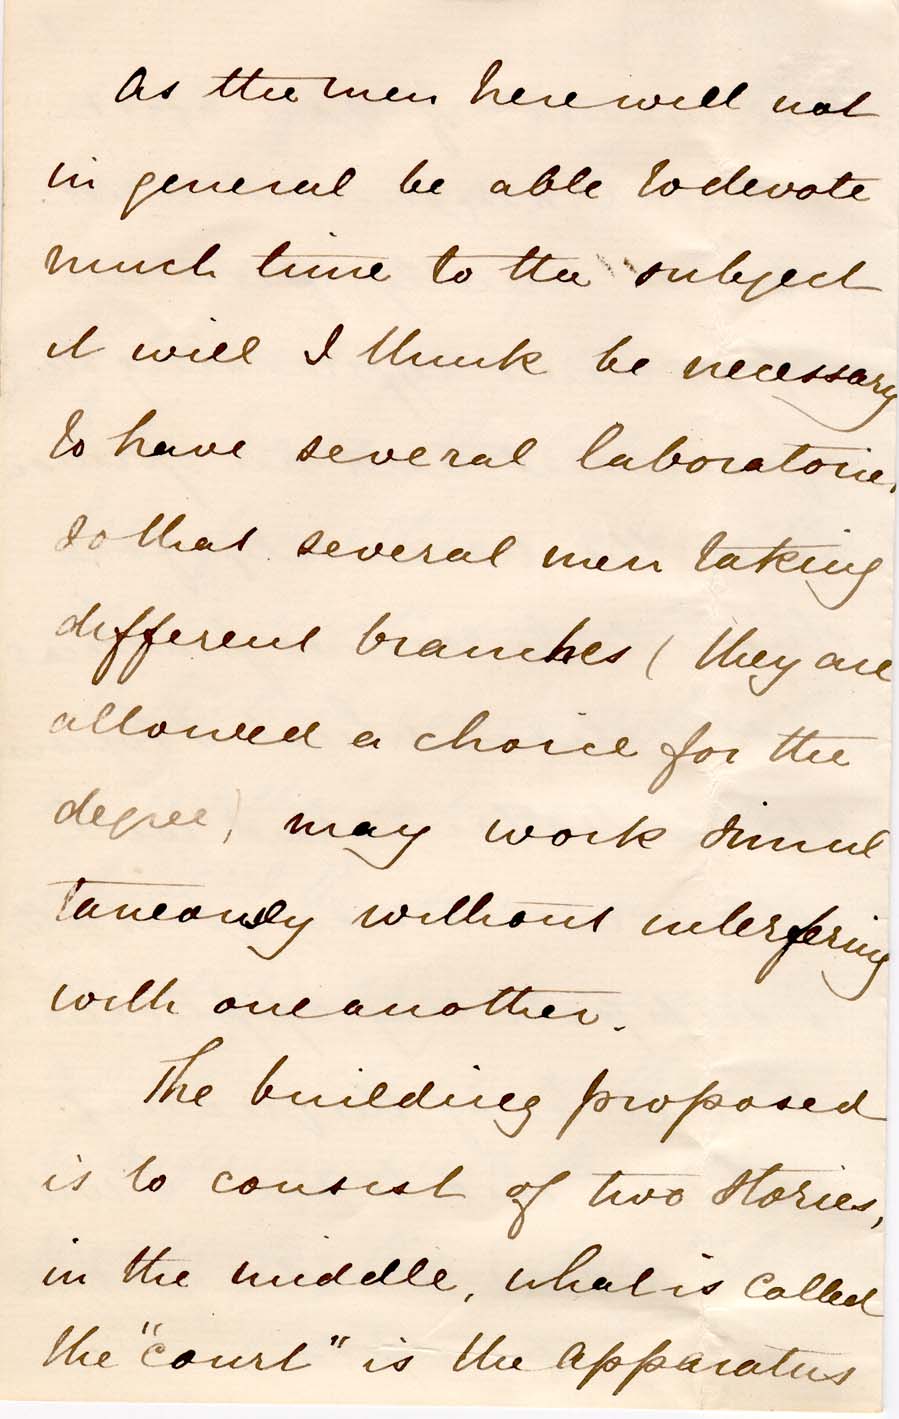 As the men here will not
in general be able to devote
much time to the subject
it will I think be necessary
to have several laboratories
so that several men taking
different branches ( they are
allowed a choice for the
degree ) may work simul
taneously without interfering
with one another.
The building proposed
is to consist of two stories,
in the middle, what is called
the "court" is the apparatus